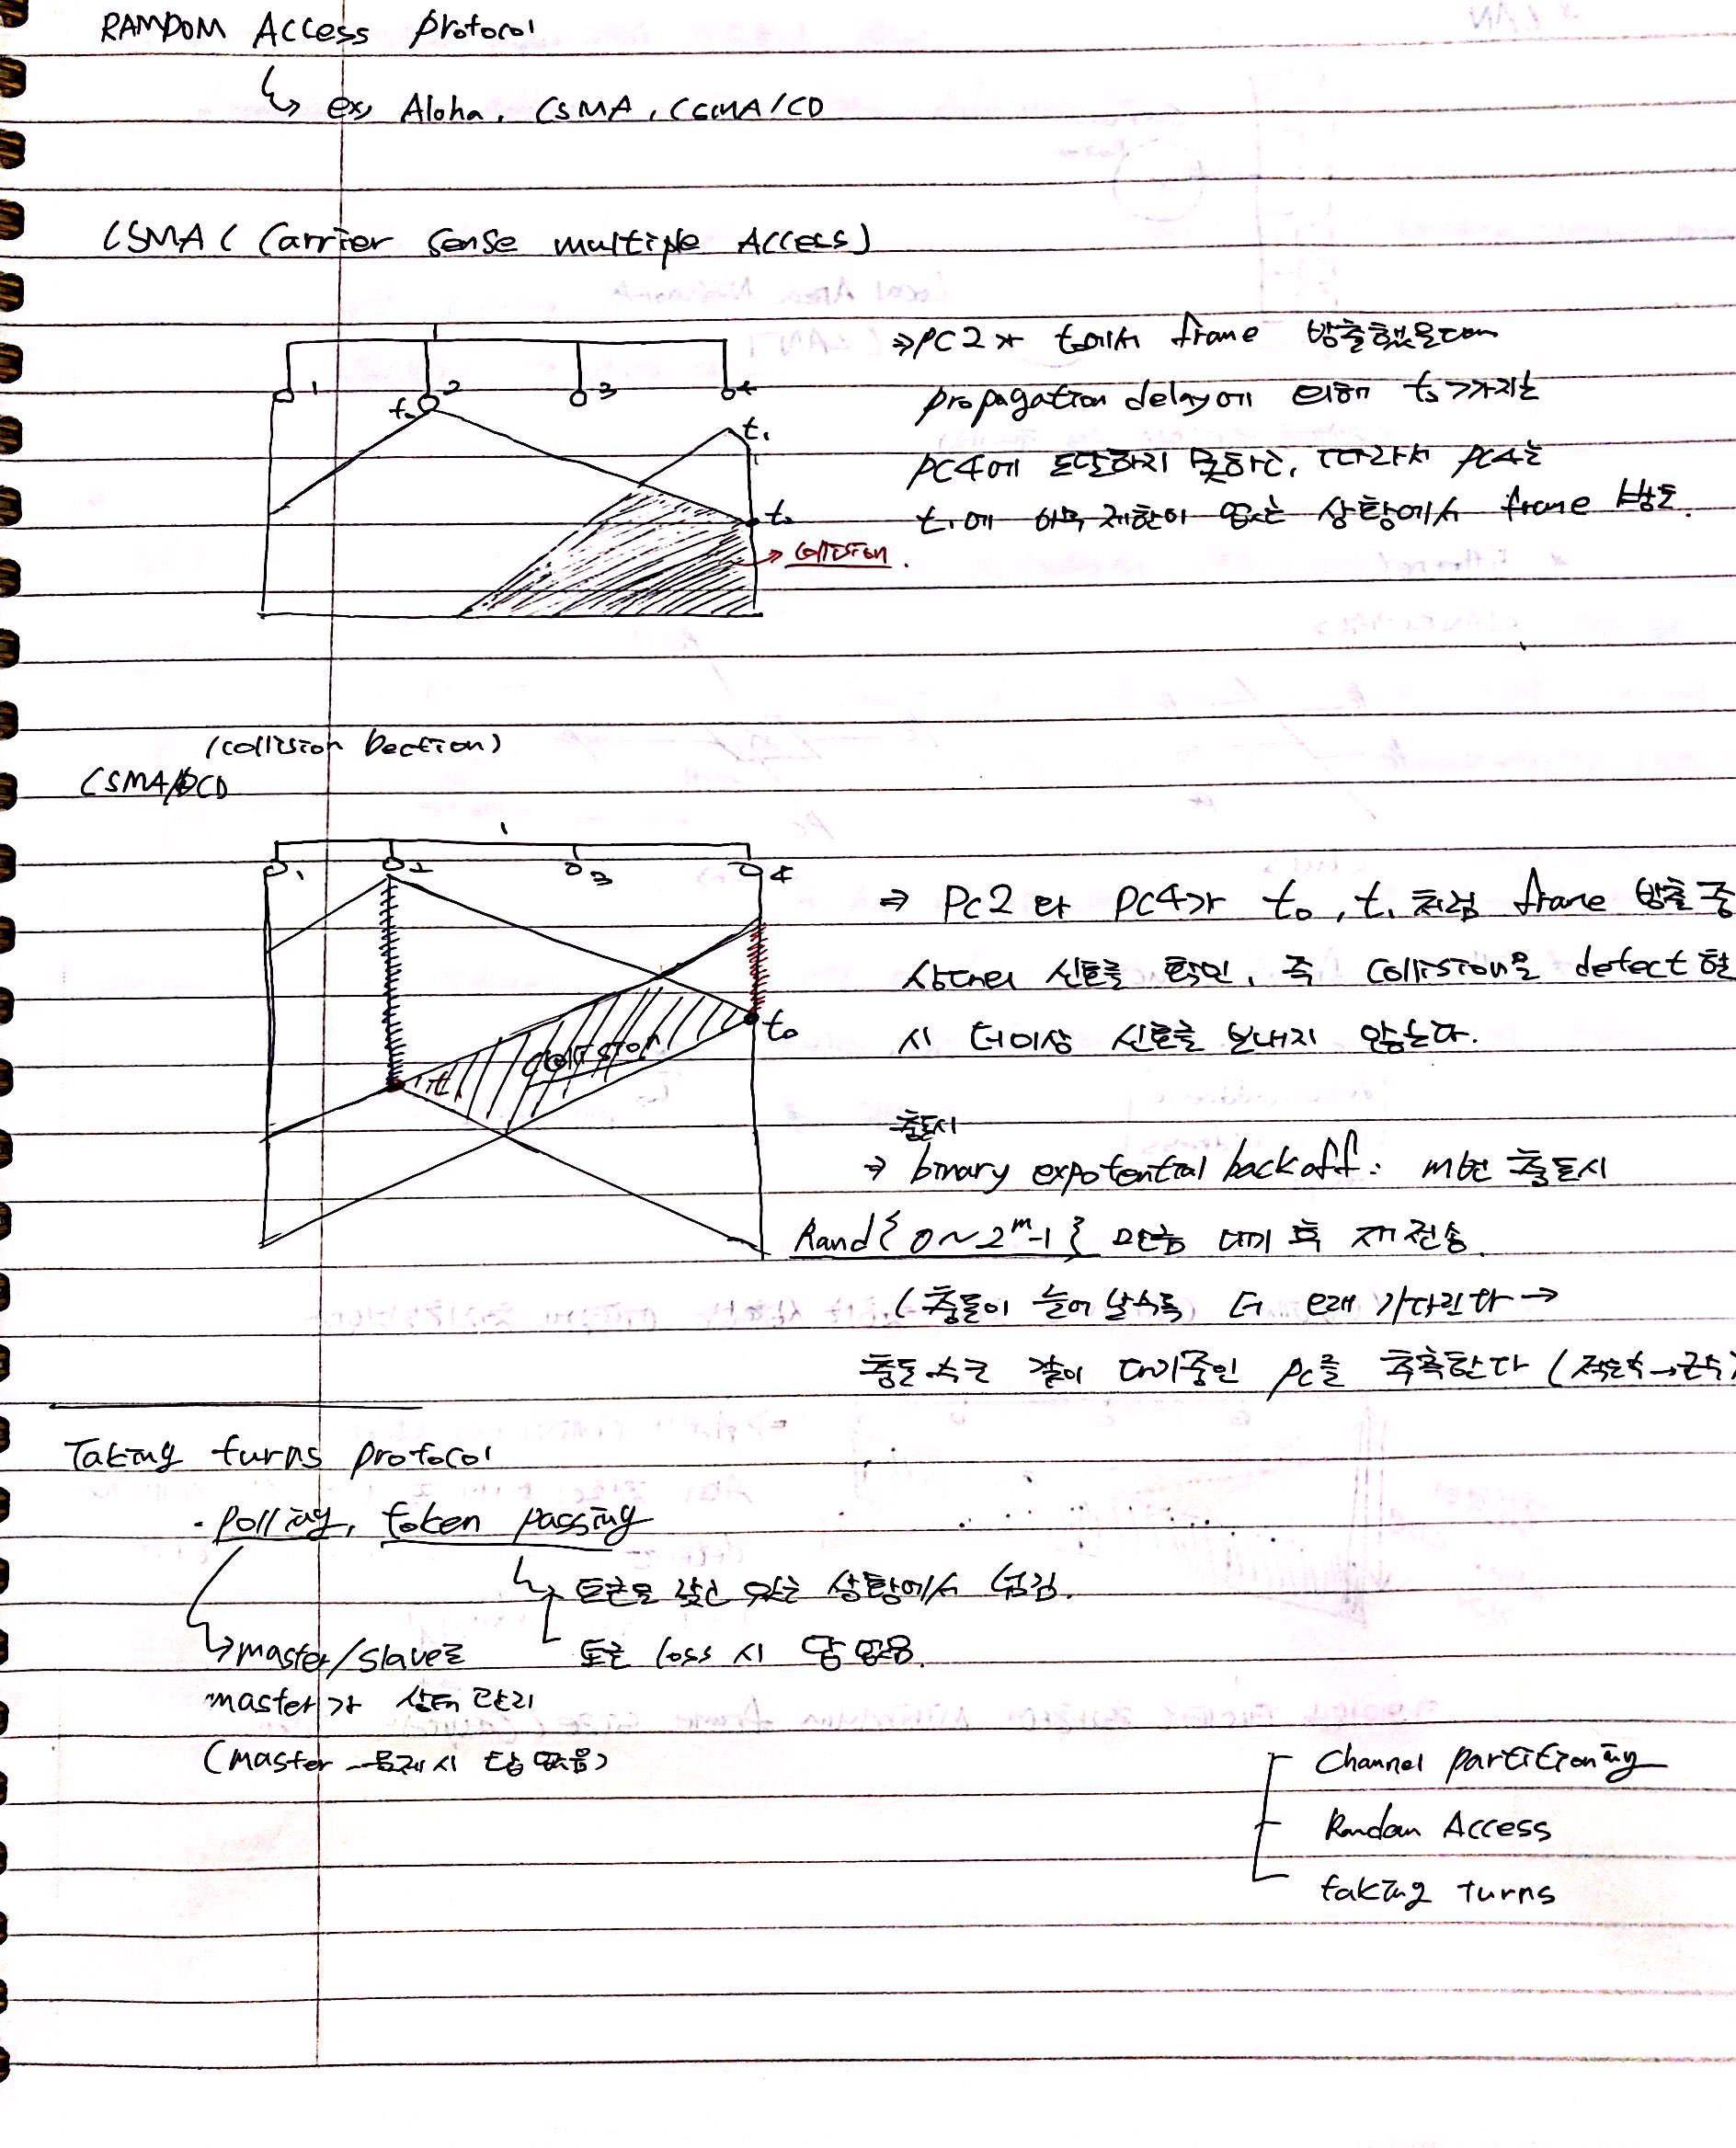 RANDOM Access Protocol
ex) Aloha, CSMA, CSMA/CD
CSMA ( Carrier Sense multiple Access)
1 2 3 4
t₀
t₁
t₂
collision.
⇒ PC2가 t₀에서 frame 방출했을 때
propagation delay에 의해 t₂까지는
PC4에 도달하지 못하고, 따라서 PC4는
t₁에 아무 제한이 없는 상황에서 frame 방출.
(collision Dection)
CSMA/CD
1 2 3 4
t₀
collision
⇒ PC2와 PC4가 t₀, t₁ 처럼 frame 방출 중
상대의 신호를 확인, 즉 collision을 detect 할
시 더이상 신호를 보내지 않는다.
충돌시
⇒ binary expotential backoff : m번 충돌시
Rand{ 0 ~ 2ᵐ-1 } 만큼 대기 후 재전송.
(충돌이 늘어날수록 더 오래 기다린다 →
충돌 수로 같이 대기중인 PC를 추측한다 (
Taking turns protocol
· polling, token passing
토큰을 갖고 있는 상황에서 넘김.
토큰 loss 시 답 없음.
master/slave로
master가 상태 관리
(master 문제시 답 없음)
Channel partitioning
Random Access
taking turns